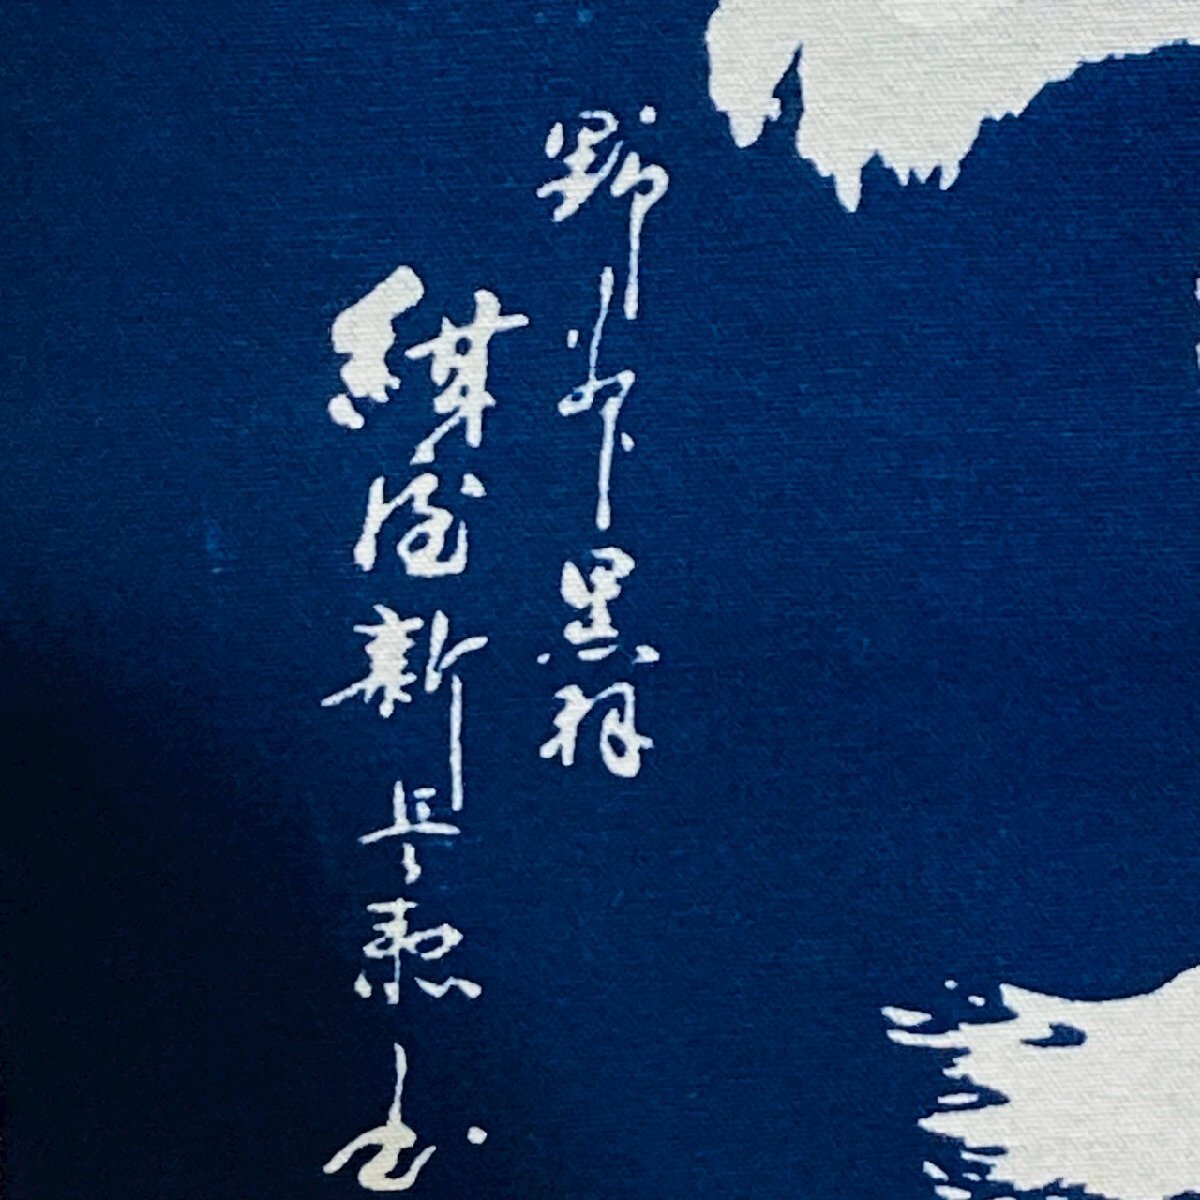 野州黒羽
紺屋新兵